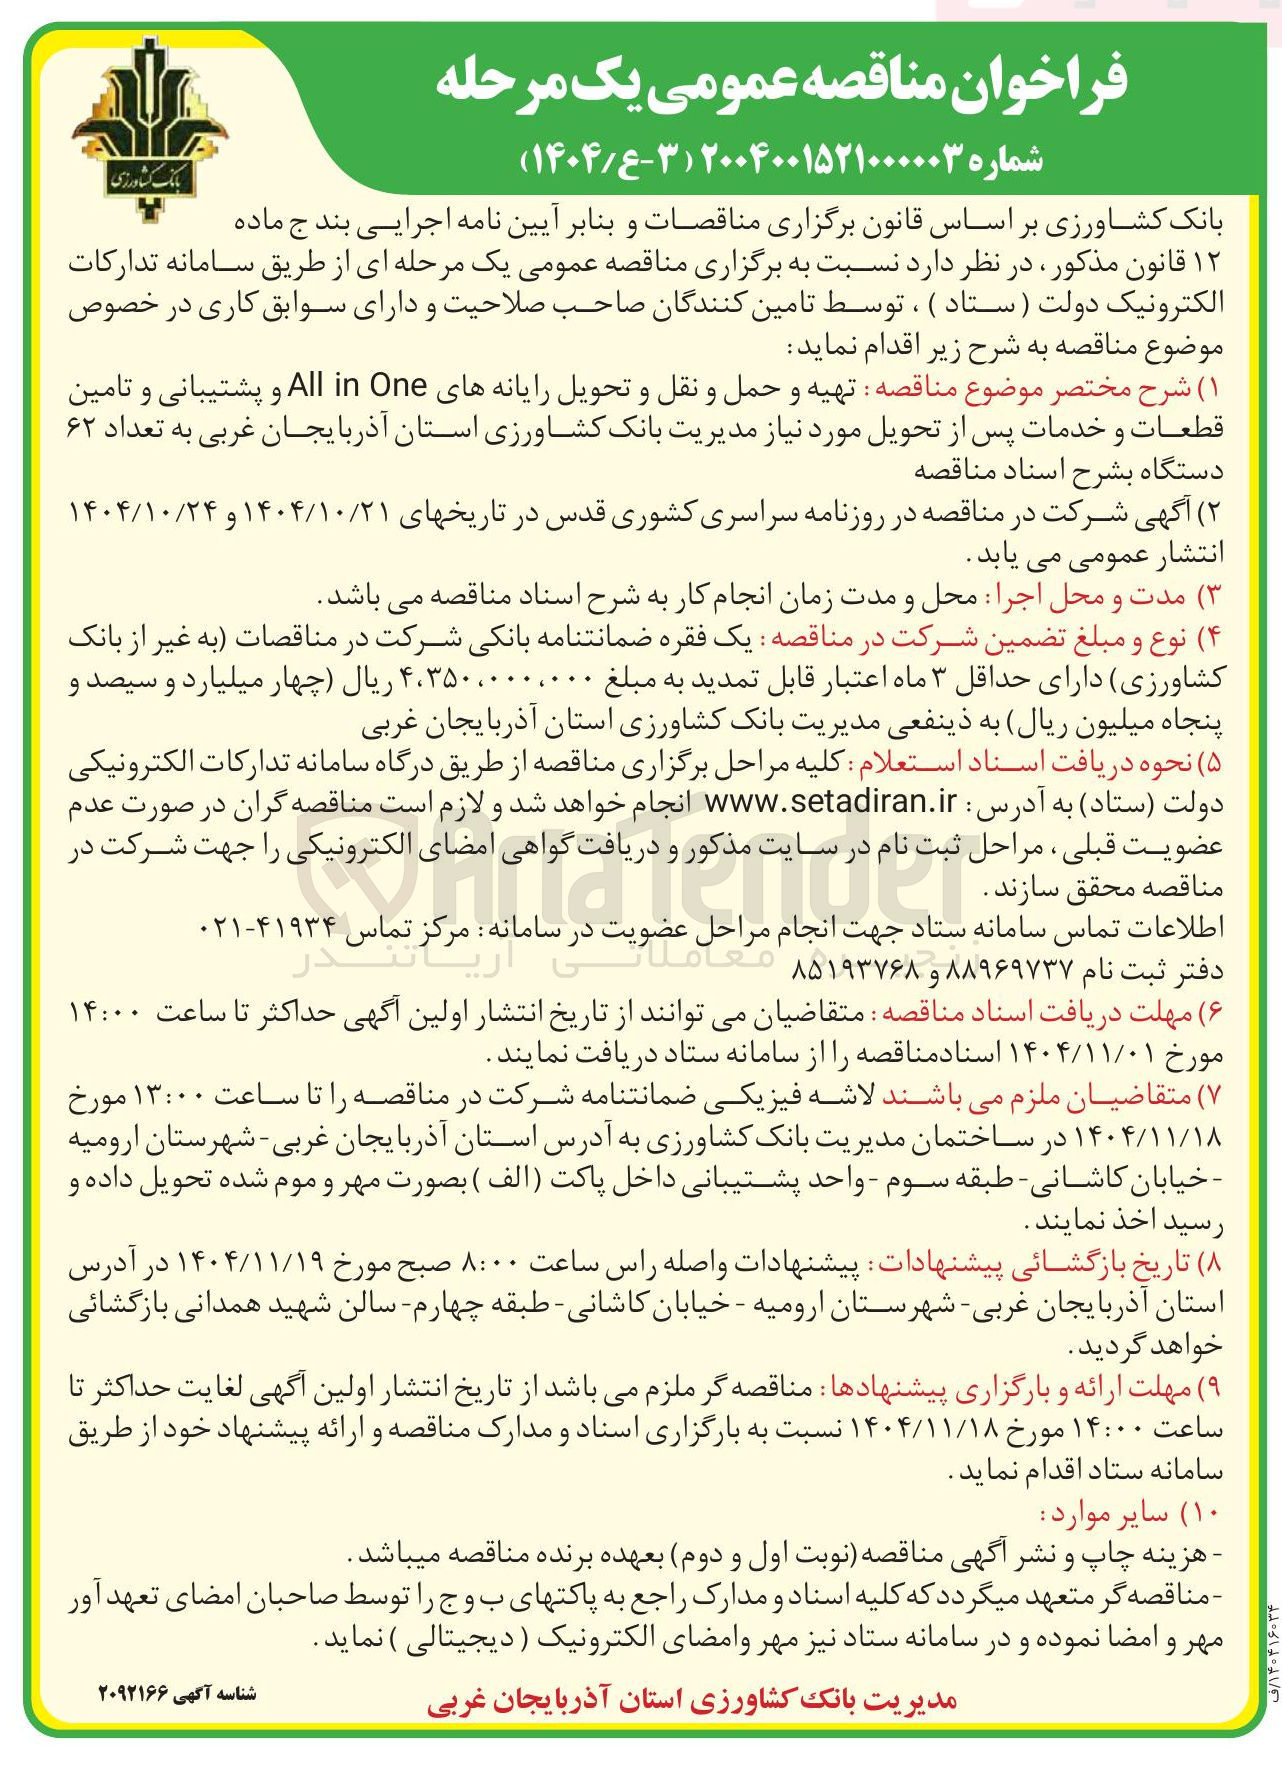 فراخوان مناقصه عمومی یک مرحله
شماره ۲۰۰۴۰۰۱۵۲۱۰۰۰۰۰۳ (۳-ع/۱۴۰۴)
بانک کشاورزی
بانک کشاورزی بر اساس قانون برگزاری مناقصات و بنابر آیین نامه اجرایی بند ج ماده
۱۲ قانون مذکور، در نظر دارد نسبت به برگزاری مناقصه عمومی یک مرحله ای از طریق سامانه تدارکات
الکترونیک دولت (ستاد) ، توسط تامین کنندگان صاحب صلاحیت و دارای سوابق کاری در خصوص
موضوع مناقصه به شرح زیر اقدام نماید:
۱) شرح مختصر موضوع مناقصه: تهیه و حمل و نقل و تحویل رایانه های All in One و پشتیبانی و تامین
قطعات و خدمات پس از تحویل مورد نیاز مدیریت بانک کشاورزی استان آذربایجان غربی به تعداد ۶۲
دستگاه بشرح اسناد مناقصه
۲) آگهی شرکت در مناقصه در روزنامه سراسری کشوری قدس در تاریخهای ۱۴۰۴/۱۰/۲۱ و ۱۴۰۴/۱۰/۲۴
انتشار عمومی می یابد.
۳) مدت و محل اجرا: محل و مدت زمان انجام کار به شرح اسناد مناقصه می باشد.
۴) نوع و مبلغ تضمین شرکت در مناقصه: یک فقره ضمانتنامه بانکی شرکت در مناقصات (به غیر از بانک
کشاورزی) دارای حداقل ۳ ماه اعتبار قابل تمدید به مبلغ ۴،۳۵۰،۰۰۰،۰۰۰ ریال (چهار میلیارد و سیصد و
پنجاه میلیون ریال) به ذینفعی مدیریت بانک کشاورزی استان آذربایجان غربی
۵) نحوه دریافت اسناد استعلام: کلیه مراحل برگزاری مناقصه از طریق درگاه سامانه تدارکات الکترونیکی
دولت (ستاد) به آدرس: www.setadiran.ir انجام خواهد شد و لازم است مناقصه گران در صورت عدم
عضویت قبلی، مراحل ثبت نام در سایت مذکور و دریافت گواهی امضای الکترونیکی را جهت شرکت در
مناقصه محقق سازند.
اطلاعات تماس سامانه ستاد جهت انجام مراحل عضویت در سامانه: مرکز تماس ۴۱۹۳۴-۰۲۱
دفتر ثبت نام ۸۸۹۶۹۷۳۷ و ۸۵۱۹۳۷۶۸
AriaTender
زنجیره معاملاتی آریاتندر
۶) مهلت دریافت اسناد مناقصه: متقاضیان می توانند از تاریخ انتشار اولین آگهی حداکثر تا ساعت ۱۴:۰۰
مورخ ۱۴۰۴/۱۱/۰۱ اسنادمناقصه را از سامانه ستاد دریافت نمایند.
۷) متقاضیان ملزم می باشند لاشه فیزیکی ضمانتنامه شرکت در مناقصه را تا ساعت ۱۳:۰۰ مورخ
۱۴۰۴/۱۱/۱۸ در ساختمان مدیریت بانک کشاورزی به آدرس استان آذربایجان غربی-شهرستان ارومیه
-خیابان کاشانی-طبقه سوم -واحد پشتیبانی داخل پاکت (الف) بصورت مهر و موم شده تحویل داده و
رسید اخذ نمایند.
۸) تاریخ بازگشائی پیشنهادات: پیشنهادات واصله راس ساعت ۸:۰۰ صبح مورخ ۱۴۰۴/۱۱/۱۹ در آدرس
استان آذربایجان غربی-شهرستان ارومیه -خیابان کاشانی-طبقه چهارم-سالن شهید همدانی بازگشائی
خواهد گردید.
۹) مهلت ارائه و بارگزاری پیشنهادها: مناقصه گر ملزم می باشد از تاریخ انتشار اولین آگهی لغایت حداکثر تا
ساعت ۱۴:۰۰ مورخ ۱۴۰۴/۱۱/۱۸ نسبت به بارگزاری اسناد و مدارک مناقصه و ارائه پیشنهاد خود از طریق
سامانه ستاد اقدام نماید.
۱۰) سایر موارد:
-هزینه چاپ و نشر آگهی مناقصه(نوبت اول و دوم) بعهده برنده مناقصه میباشد.
-مناقصه گر متعهد میگردد که کلیه اسناد و مدارک راجع به پاکتهای ب و ج را توسط صاحبان امضای تعهد آور
مهر و امضا نموده و در سامانه ستاد نیز مهر وامضای الکترونیک (دیجیتالی) نماید.
مدیریت بانک کشاورزی استان آذربایجان غربی
شناسه آگهی ۲۰۹۲۱۶۶
۱۴۰۴۱۶۰۳۴/ف